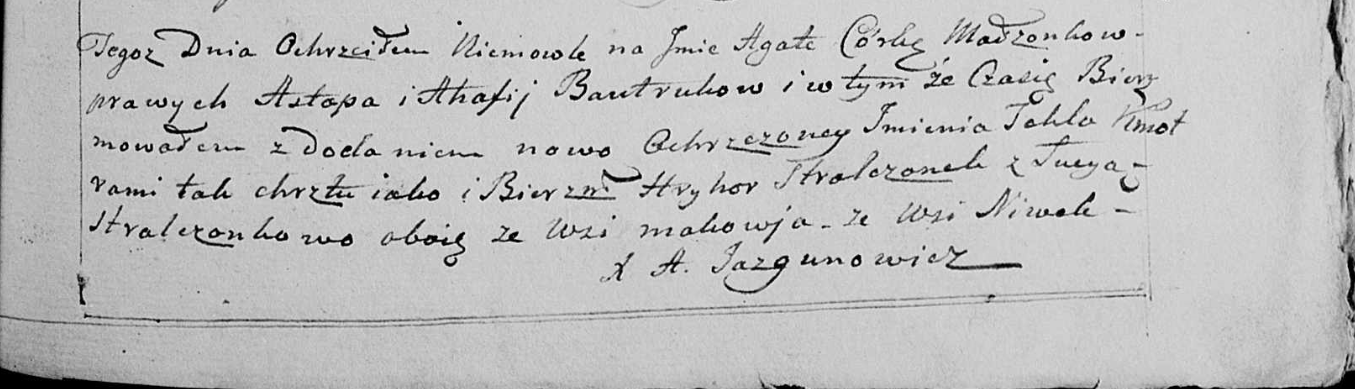 Tegoż Dnia Ochrzciłem Niemowle na Jmie Agatę Córkę Madżonkow-
prawych Astapa i Ahafij Bautrukow i w tym że Czasię Bierz
mowałem z Dodaniem nowo Ochrzczoney Jmienia Tekla Kmot
rami tak chrztu iako i Bierzm Hryhor Stralczonek z Łucyą-
Stralczonkowo oboię ze wsi makowja - ze wsi Niwek -
X A. Jazgunowicz